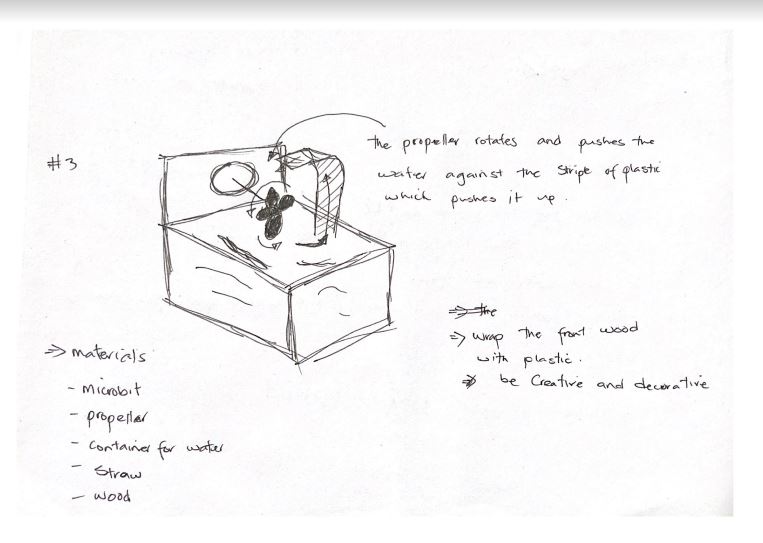 #3
the propeller rotates and pushes the
water against the stripe of plastic
which pushes it up.
⇒ the
⇒ wrap the front wood
with plastic.
⇒ be creative and decorative
⇒ materials
- microbit
- propeller
- container for water
- straw
- wood